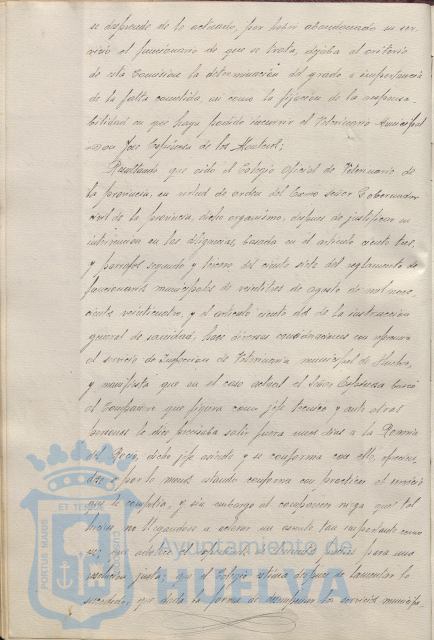 se desprende de lo actuado, por haber abandonado su ser-
vicio el funcionario de que se trata, dejaba al criterio
de esta Comisión la determinación del grado e importancia
de la falta cometida, asi como la fijación de la responsa-
bilidad en que haya podido incurrir el Veterinario Municipal
Don José Espinosa de los Monteros;
Resultando que oído el Colegio Oficial de Veterinarios de
la provincia, en virtud de orden del Excmo señor Gobernador
civil de la provincia, dicho organismo, despues de justificar su
intervencion en las diligencias, basada en el artículo ciento tres,
y parrafos segundo y tercero del ciento siete del reglamento de
funcionarios municipales de veintitres de agosto de mil nove-
cientos veinticuatro, y el artículo ciento dos de la instrucción
general de sanidad, hace diversas consideraciones con referencia
al servicio de Inspección de Veterinaria municipal de Huelva,
y manifiesta que en el caso actual el Señor Espinosa buscó
al Compañero que figura como jefe técnico y ante otras
personas le dijo precisaba salir fuera unos dias a la Romería
del Rocio, dicho jefe asiente y se conforma con ello,
por lo menos estando conforme con practicar el servicio
que le competia, y sin embargo el compañero niega que tal
hiciera, no llegandose a aclarar un asunto tan importante como
es; que
justa; que el Colegio estima despues de lamentar lo
sucedido, que dada la forma de desempeñar los servicios municipa-
ET TERRAE
PORTUS MARIS
CUSTODIA
Ayuntamiento de
HUELVA